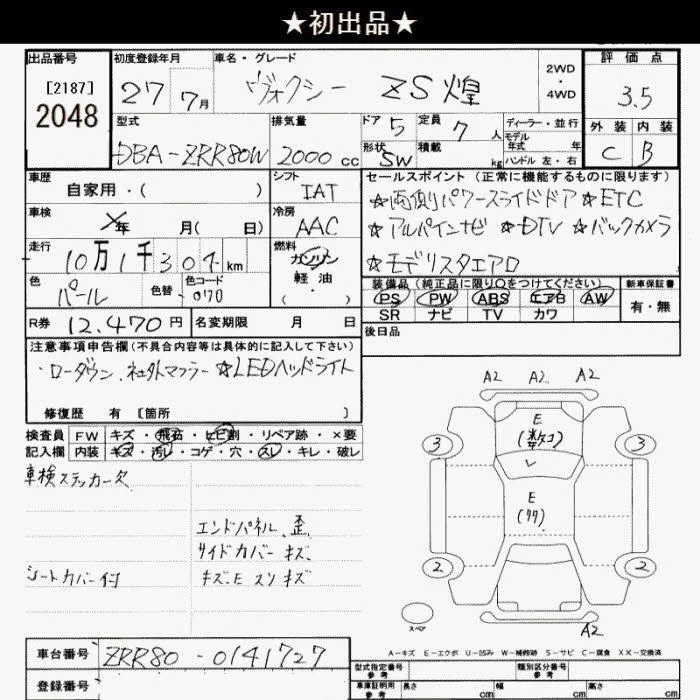 ★初出品★
出品番号
[2187]
2048
初度登録年月
27 7月
車名・グレード
ヴォクシー ZS煌
2WD
・
4WD
評価点
3.5
外装 内装
C B
型式
DBA-ZRR80W
排気量
2000cc
ドア 5
形状 SW
定員 7 人
積載 kg
ディーラー・並行
モデル年式 年
ハンドル 左・右
車歴
自家用・( )
シフト
IAT
車検
年 月( 日)
冷房
AAC
走行
10万1千 km
燃料
ガソリン
軽油
( )
色
パール
色替
色コード
070
R券 12,470円
名変期限 月 日
セールスポイント(正常に機能するものに限ります)
★両側パワースライドドア ★ETC
★アルパインナビ ★DTV ★バックカメラ
★モデリスタエアロ
装備品(純正品に限り○をつけてください)
PS PW ABS エアB AW
SR ナビ TV カワ
新車保証書
有・無
後日品
注意事項申告欄(不具合内容等は具体的に記入して下さい)
・ローダウン、社外マフラー ★LEDヘッドライト
修復歴 有 [箇所 ]
検査員 FW キズ・飛石・ヒビ割・リペア跡・×要
記入欄 内装 キズ・汚レ・コゲ・穴・スレ・キレ・破レ
車検ステッカー欠
エンドパネル歪
サイドカバーキズ
シートカバー付
キズ・E スリキズ
A2 A2 A2
E
3 3
E
2 2
スペア
A2
A-キズ E-エクボ U-凹み W-補修跡 S-サビ C-腐食 XX-交換済
車台番号 ZRR80-0141727
登録番号
型式指定番号
参考
類別区分番号
参考
車庫証明用
参考
長さ cm 幅 cm 高さ cm